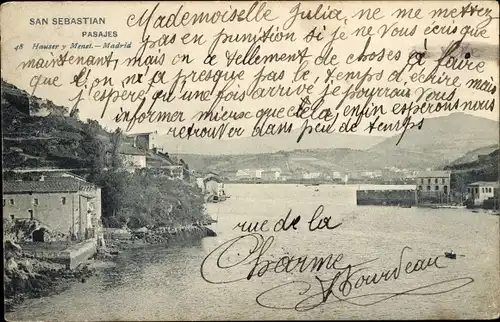 SAN SEBASTIAN
PASAJES
48 Hauser y Menet.-Madrid
Mademoiselle Julia, ne me mettez
pas en punition si je ne vous écris que
maintenant, mais on a tellement de choses à faire
que l'on n'a presque pas le temps d'écrire mais
j'espère qu'une fois arrivé je pourrais vous
informer mieux que cela, enfin espérons nous
retrouver dans peu de temps
rue de la
Charme
Hourdeau